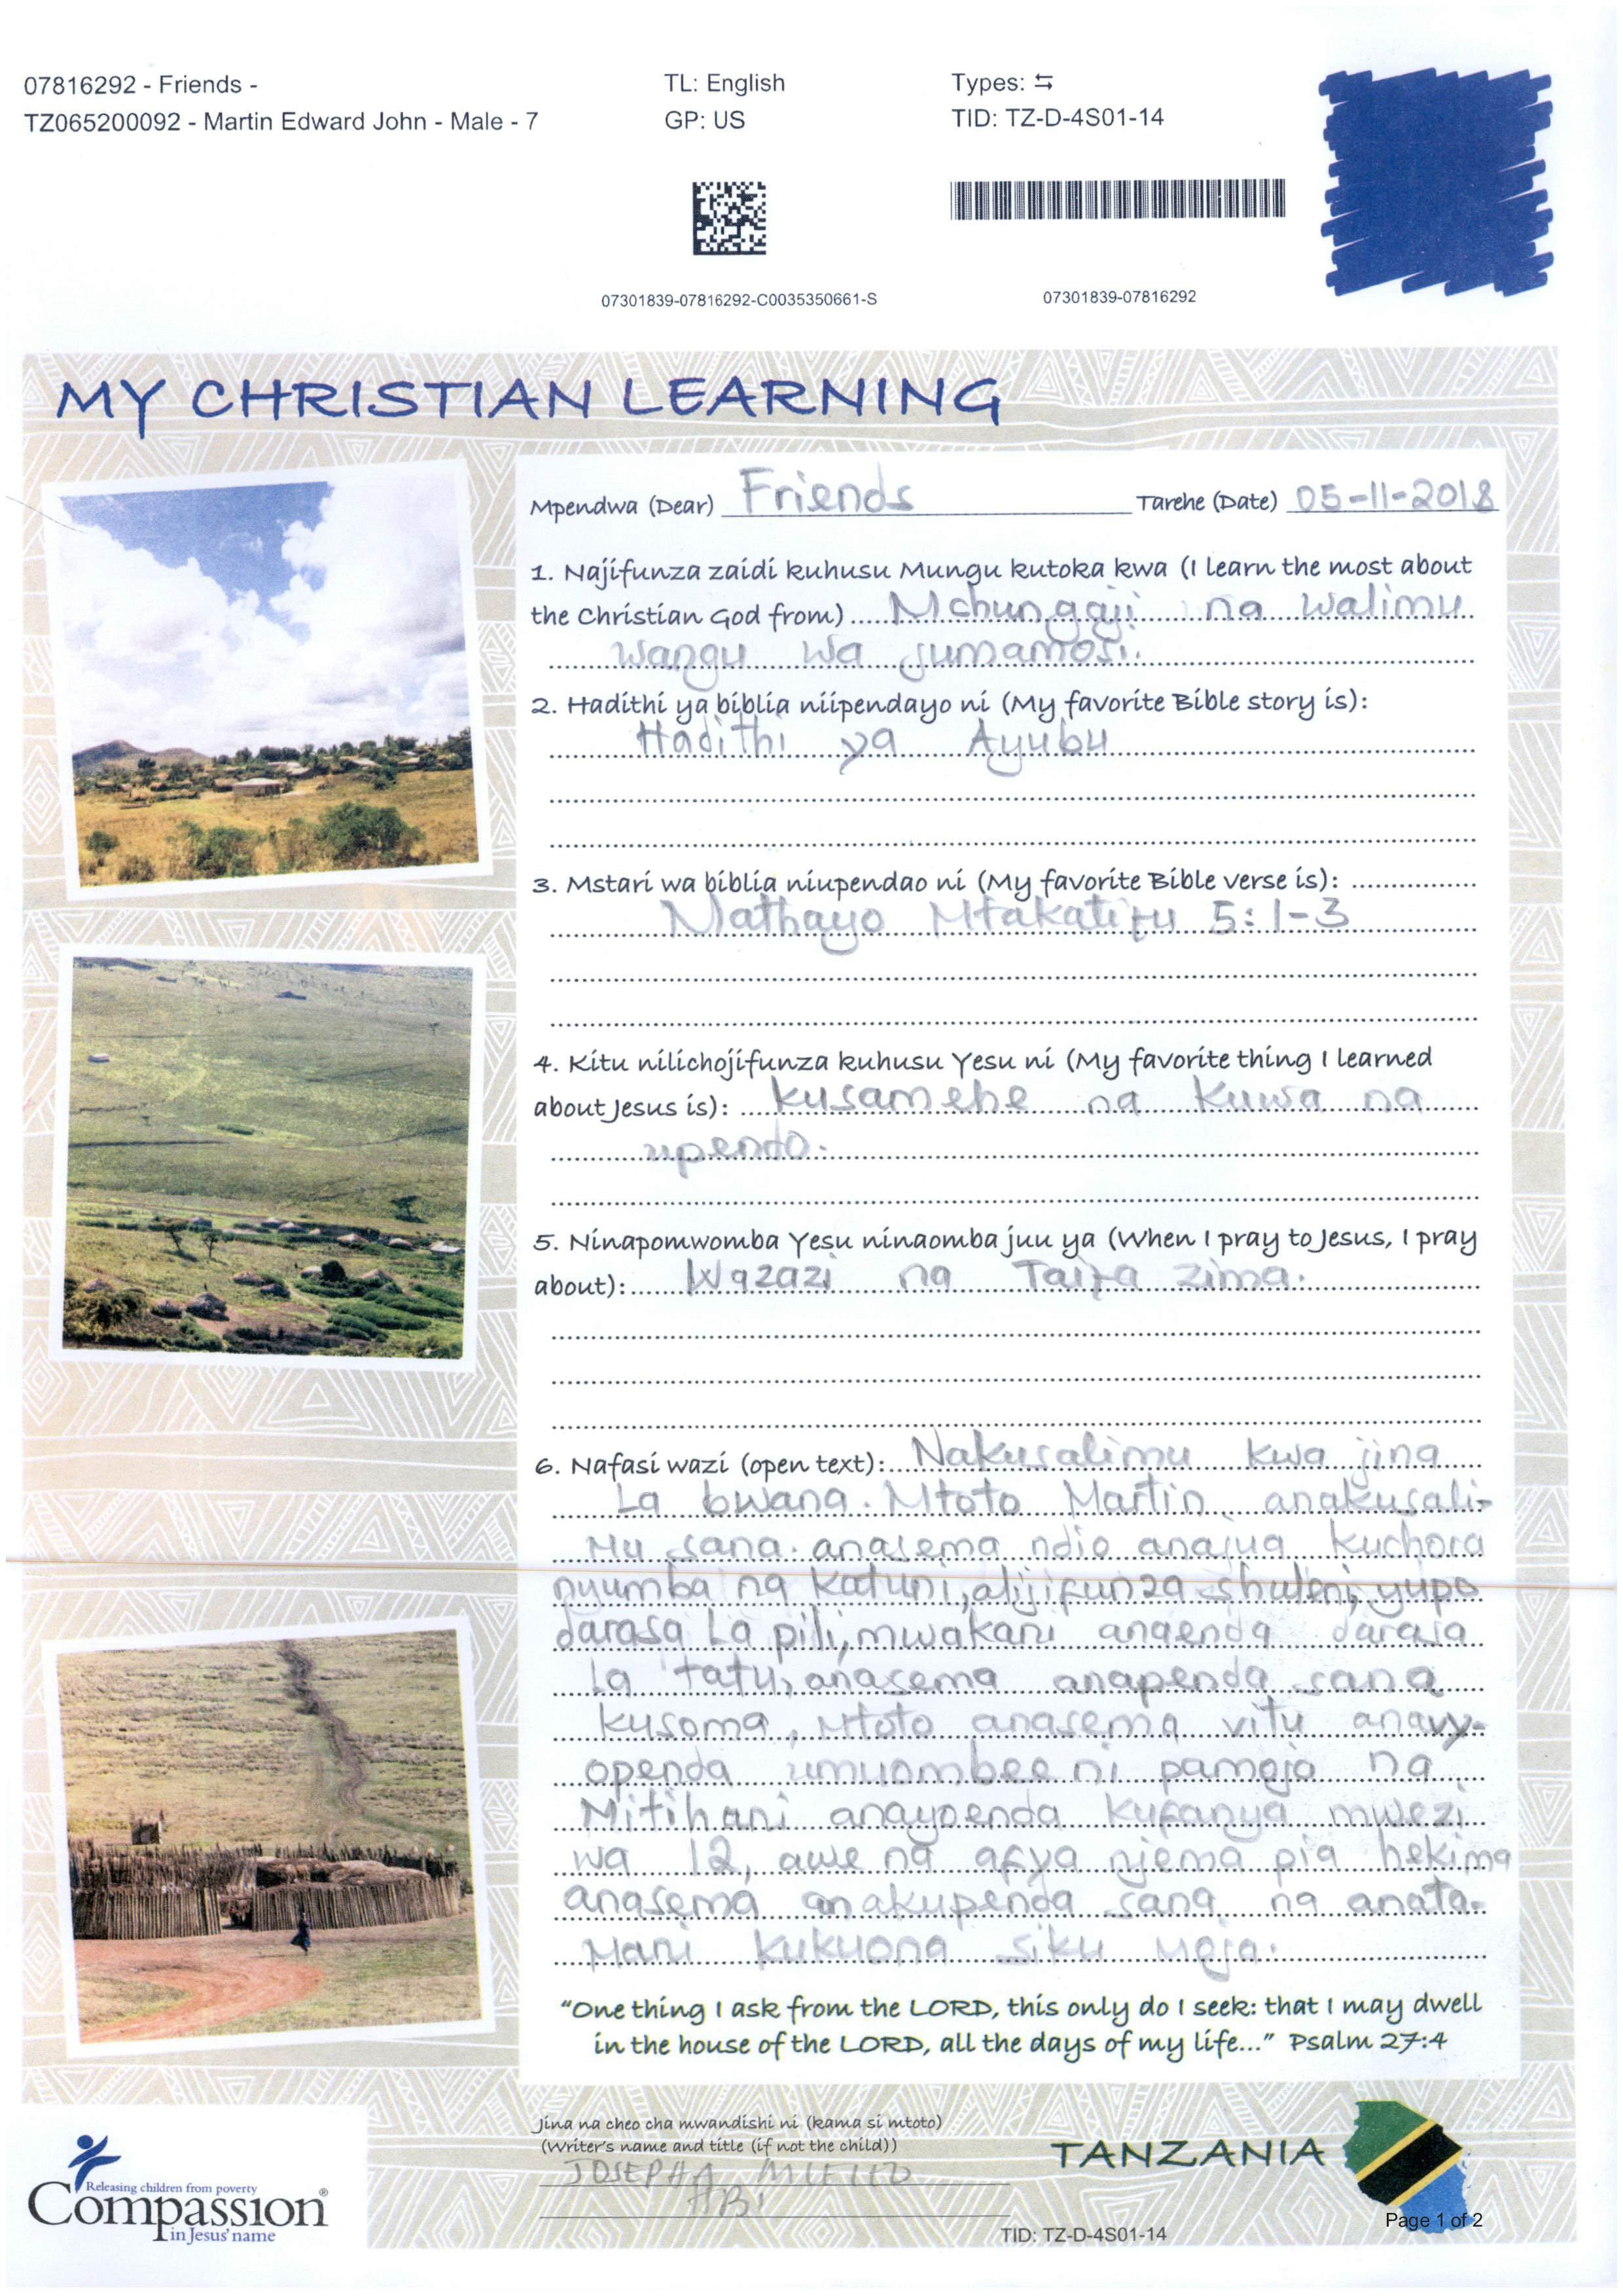 07816292 - Friends -
TZ065200092 - Martin Edward John - Male - 7
TL: English
GP: US
Types: ⇆
TID: TZ-D-4S01-14
07301839-07816292-C0035350661-S
07301839-07816292
MY CHRISTIAN LEARNING
Mpendwa (Dear) Friends Tarehe (Date) 05-11-2018
1. Najifunza zaidi kuhusu Mungu kutoka kwa (I learn the most about
the Christian God from) Mchungaji na walimu
wangu wa jumamosi.
2. Hadithi ya biblia niipendayo ni (My favorite Bible story is):
Hadithi ya Ayubu
3. Mstari wa biblia niupendao ni (My favorite Bible verse is):
Mathayo Mtakatifu 5:1-3
4. Kitu nilichojifunza kuhusu Yesu ni (My favorite thing I learned
about Jesus is): kusamehe na kuwa na
upendo.
5. Ninapomwomba Yesu ninaomba juu ya (When I pray to Jesus, I pray
about): Wazazi na Taifa zima.
6. Nafasi wazi (open text): Nakusalimu kwa jina
La bwana. Mtoto Martin anakusali-
Mu sana. anasema ndio anajua kuchora
nyumba na katuni, alijifunza shuleni, yupo
darasa La pili, mwakani anaenda darasa
La tatu, anasema anapenda sana
kusoma, Mtoto anasema vitu anavy-
openda umuombee ni pamoja na
Mitihani anayoenda kufanya mwezi
wa 12, awe na afya njema pia hekima
anasema anakupenda sana na anata-
Mani kukuona siku moja.
"One thing I ask from the LORD, this only do I seek: that I may dwell
in the house of the LORD, all the days of my life..." Psalm 27:4
Jina na cheo cha mwandishi ni (kama si mtoto)
(Writer's name and title (if not the child))
JOSEPHA
TANZANIA
Releasing children from poverty
Compassion®
in Jesus' name
TID: TZ-D-4S01-14
Page 1 of 2